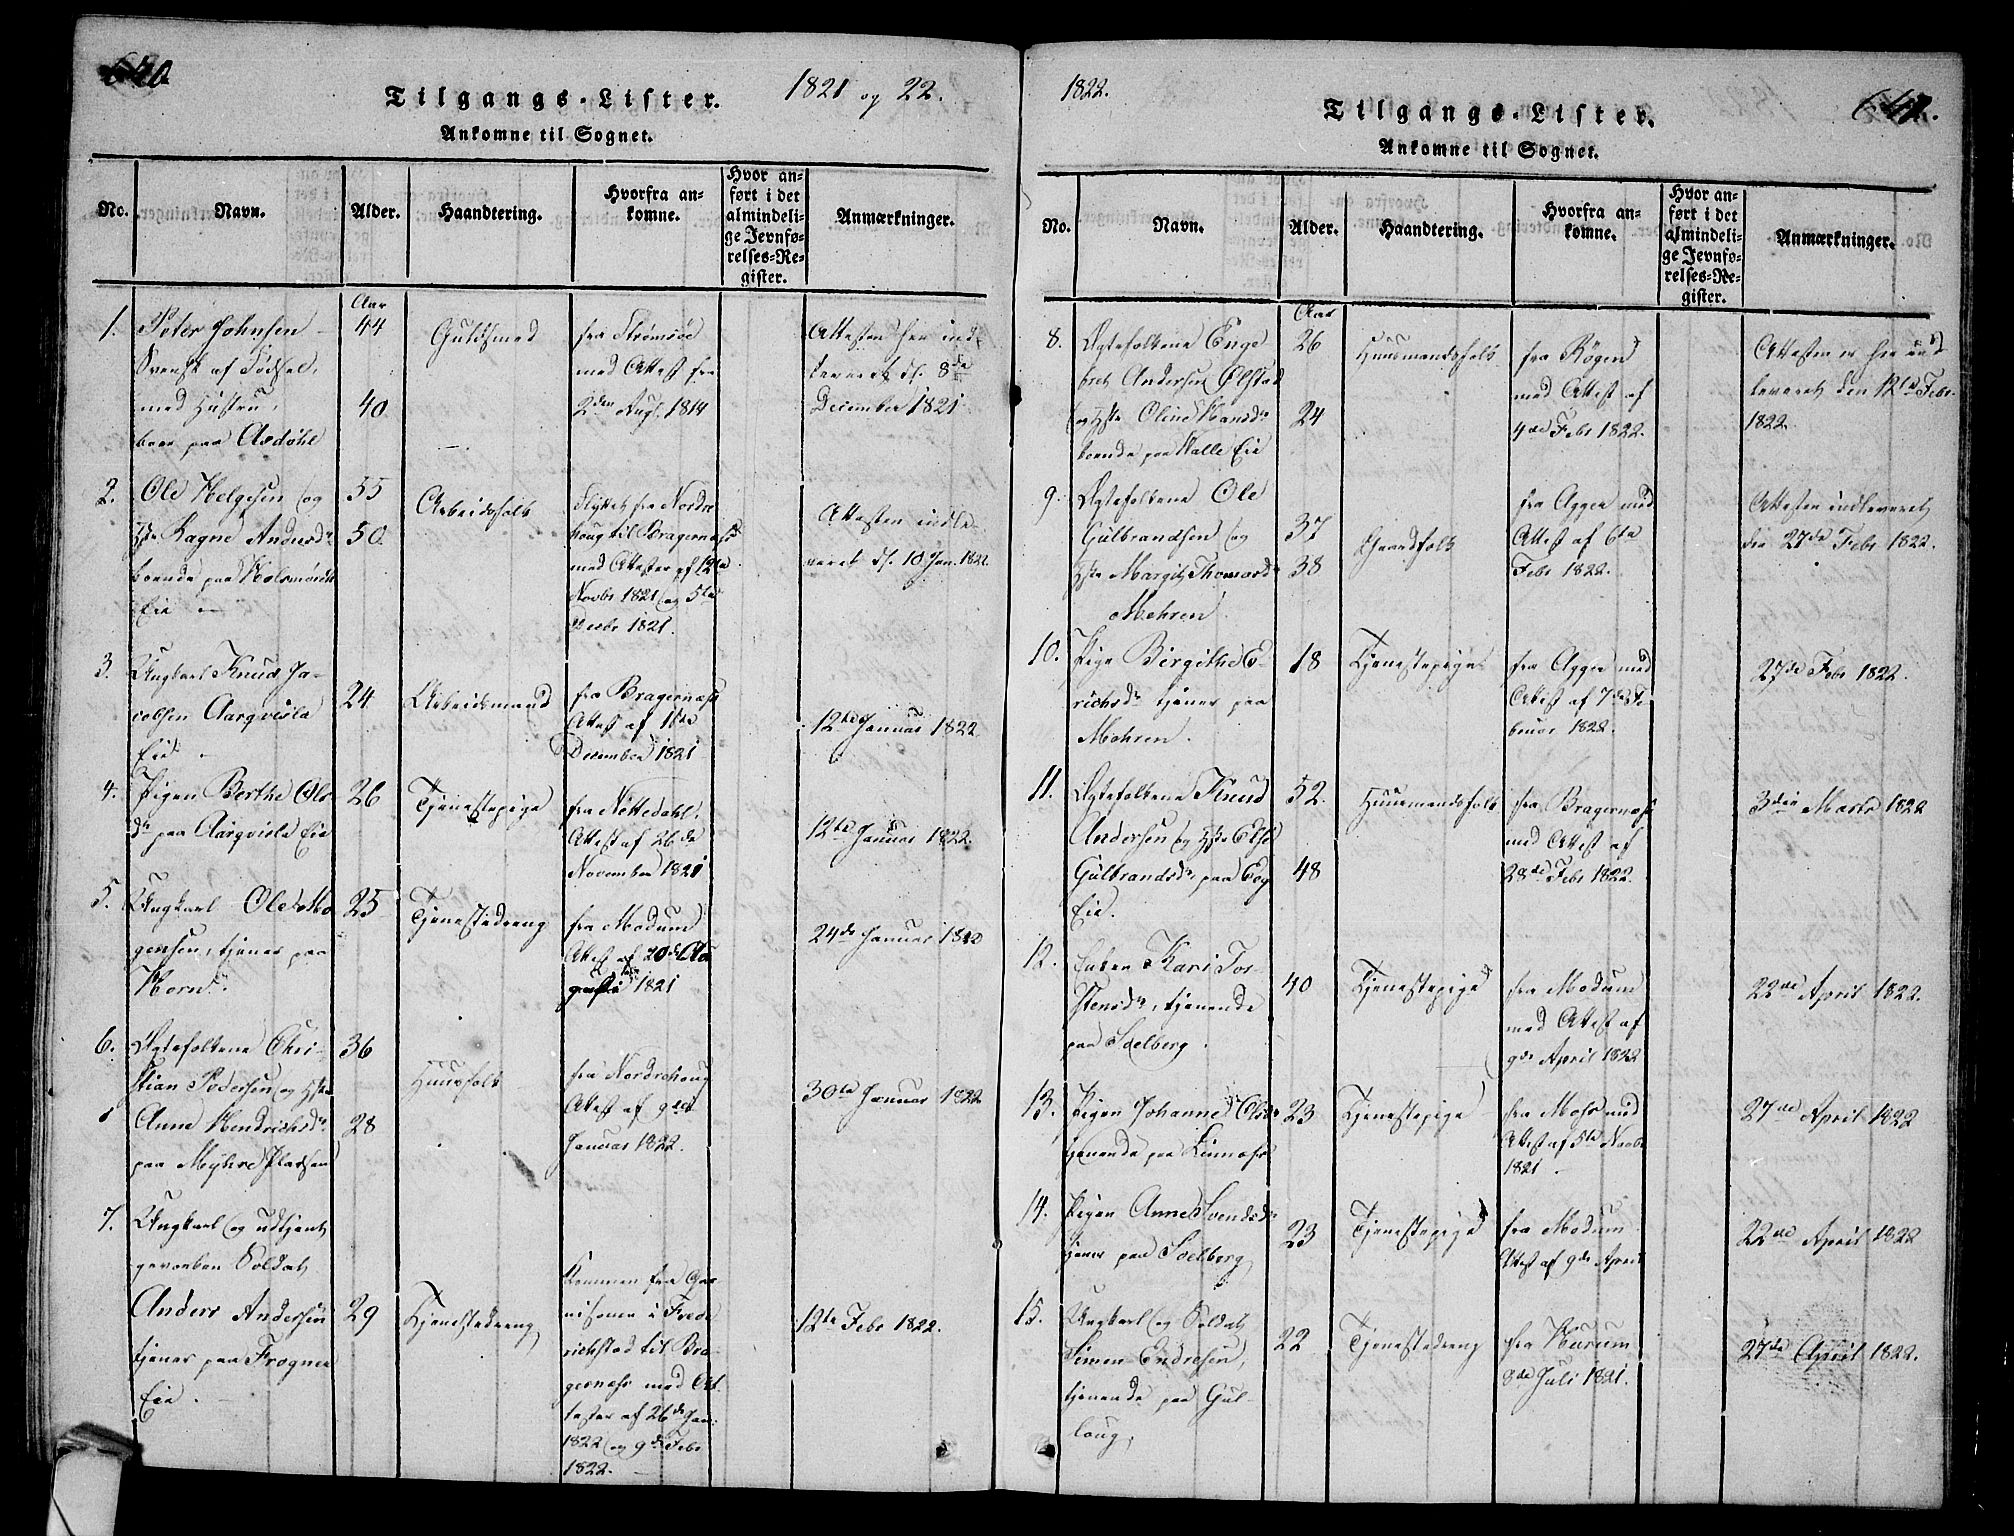 Tilgangs-Lister. 1821 og 22.
Ankomne til Sognet.
No. Navn. Alder. Haandtering. Hvorfra ankomne. Hvor anført i det almindelige Jevnførelses-Register. Anmærkninger.
Aar
1. Peter Johnsen 44 Guldsmed fra Strømsöe Attesten her ind-
Svensk af Födsel, med Attest fra leveret d. 8de
med Hustru, 40 2den Aug. 1814 December 1821
boer paa
2. Ole Helgesen og 55 Arbeidsfolk Flyttet fra Nordre- Attesten indle-
Hstr Ragne Andersdr 50 houg til Bragernæss veret d. 10 Jan. 1822.
boende paa med Attester af 12te
Eie Novbr 1821 og 5te
Decbr 1821.
3. Ungkarl Knud Ja-
cobsen Aarqvisla 24 Arbeidsmand fra Bragernæss 12te Januar 1822
Eie Attest af 11te
December 1821
4. Pigen Berthe Ols- 26 Tjenestepige fra Nittedahl. 12te Januar 1822.
dr paa Aarqvisla Eie Attest af 26de
November 1821
5. Ungkarl Ole Mo- 25 Tjenestedreng fra Modum 24de Januar 1822
gensen, tjener paa Attest af 20de
Horn. 1821
6. Ægtefolkene Chri- 36
stian Pedersen og Hstr Huusfolk fra Nordrehoug 30te Januar 1822
Anne Hendrichsdr 28 Attest af 9de
paa Myhre Pladsen Januar 1822.
7. Ungkarl og udtjent
gevorben Soldat Kommen fra Gar-
Anders Andersen 29 Tjenestedreng nisonen i Frede- 12te Febr 1822.
tjener paa Frogner richstad til Bra-
Eie. gernæss med At-
tester af 26de Jan:
1822 og 9de Febr
1822.
1822. Tilgangs-Lister.
Ankomne til Sognet.
No. Navn. Alder. Haandtering. Hvorfra ankomne. Hvor anført i det almindelige Jevnførelses-Register. Anmærkninger.
Aar
8. Ægtefolkene Enge- 26 Huusmandsfolk fra Rögen Attesten er her ind-
bret Andersen Ølstad med Attest af leveret den 12te Febr.
og Hstr Oline Hansdr 24 4de Febr 1822. 1822.
boende paa Walle Eie
9. Ægtefolkene Ole fra Agger med Attesten indleveret
Gulbrandsen og 37 Gaardfolk Attest af 6te den 27de Febr 1822.
Hstr Margit Thomasdr 38 Febr 1822.
Mehren
10. Pige Birgithe E- 18 Tjenestepige fra Agger med 27de Febr 1822.
richsdr tjener paa Attest af 7de Fe-
Mehren. bruar 1822.
11. Ægtefolkene Knud 52. Huusmandsfolk fra Bragernæss 3die Marts 1822
Andersen og Hstr Else med Attest af
Gulbrandsdr paa Eeg 48 28de Febr 1822.
Eie.
12. Enken Kari Tor- 40 Tjenestepige fra Modum 22de April 1822.
stensdr, tjenende med Attest af
paa Soelberg. 9de April 1822
13. Pigen Johanne Olsdr 23 Tjenestepige fra Moss med 27de April 1822
tjenende paa Linnæss Attest af 5te Novbr
1821.
14. Pigen Anne Svendsdr 23 Tjenestepige fra Modum 22de April 1822
tjener paa Soelberg Attest af 9de April
15. Ungkarl og Soldat
Simen Endresen, 22 Tjenestedreng fra Hurum 27de April 1822.
tjenende paa Gul- 8de Juli 1821.
loug,